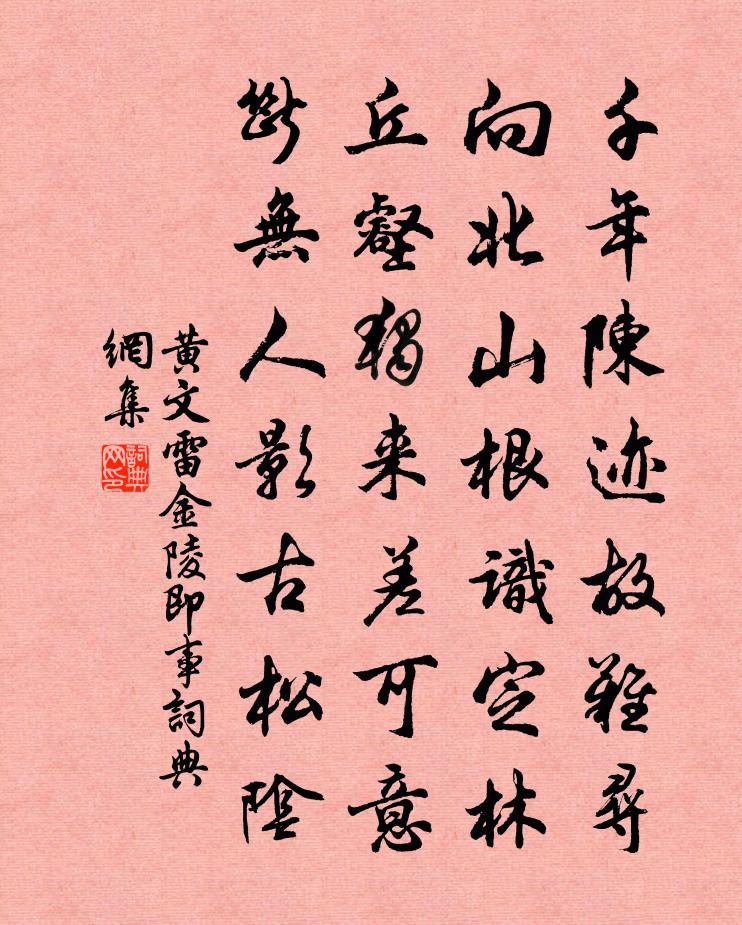 千年陳迹故難尋
向北山根識定林
丘壑獨来差可意
斷無人影古松陰
黄文雷金陵即事詞典
網集
詞典
网印